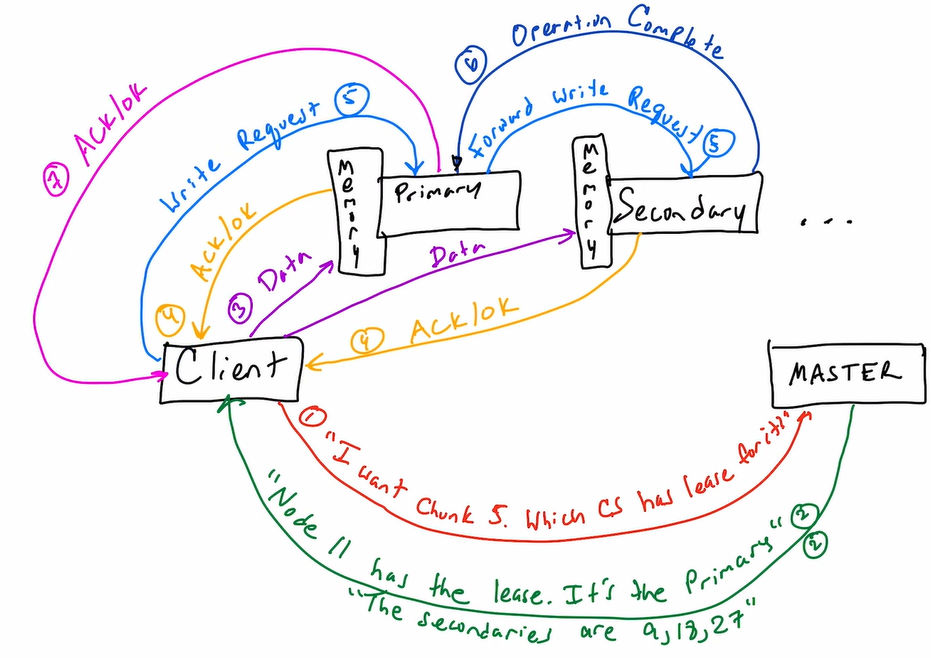 ⑥ Operation Complete
⑦ Ack/ok
Write Request ⑤
Forward Write Request ⑤
Memory
Primary
Memory
Secondary
...
④ Ack/ok
③ Data
Data
④ Ack/ok
Client
MASTER
① "I want Chunk 5. Which CS has lease for it?"
"Node 11 has the lease. It's the Primary" ②
"The secondaries are 9,18,27" ②